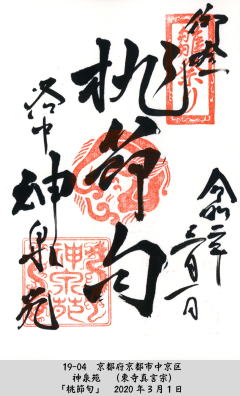 桃節句
洛中
神泉苑
令和二年
三月一日
19-04 京都府京都市中京区
神泉苑 (東寺真言宗)
「桃節句」 2020年3月1日